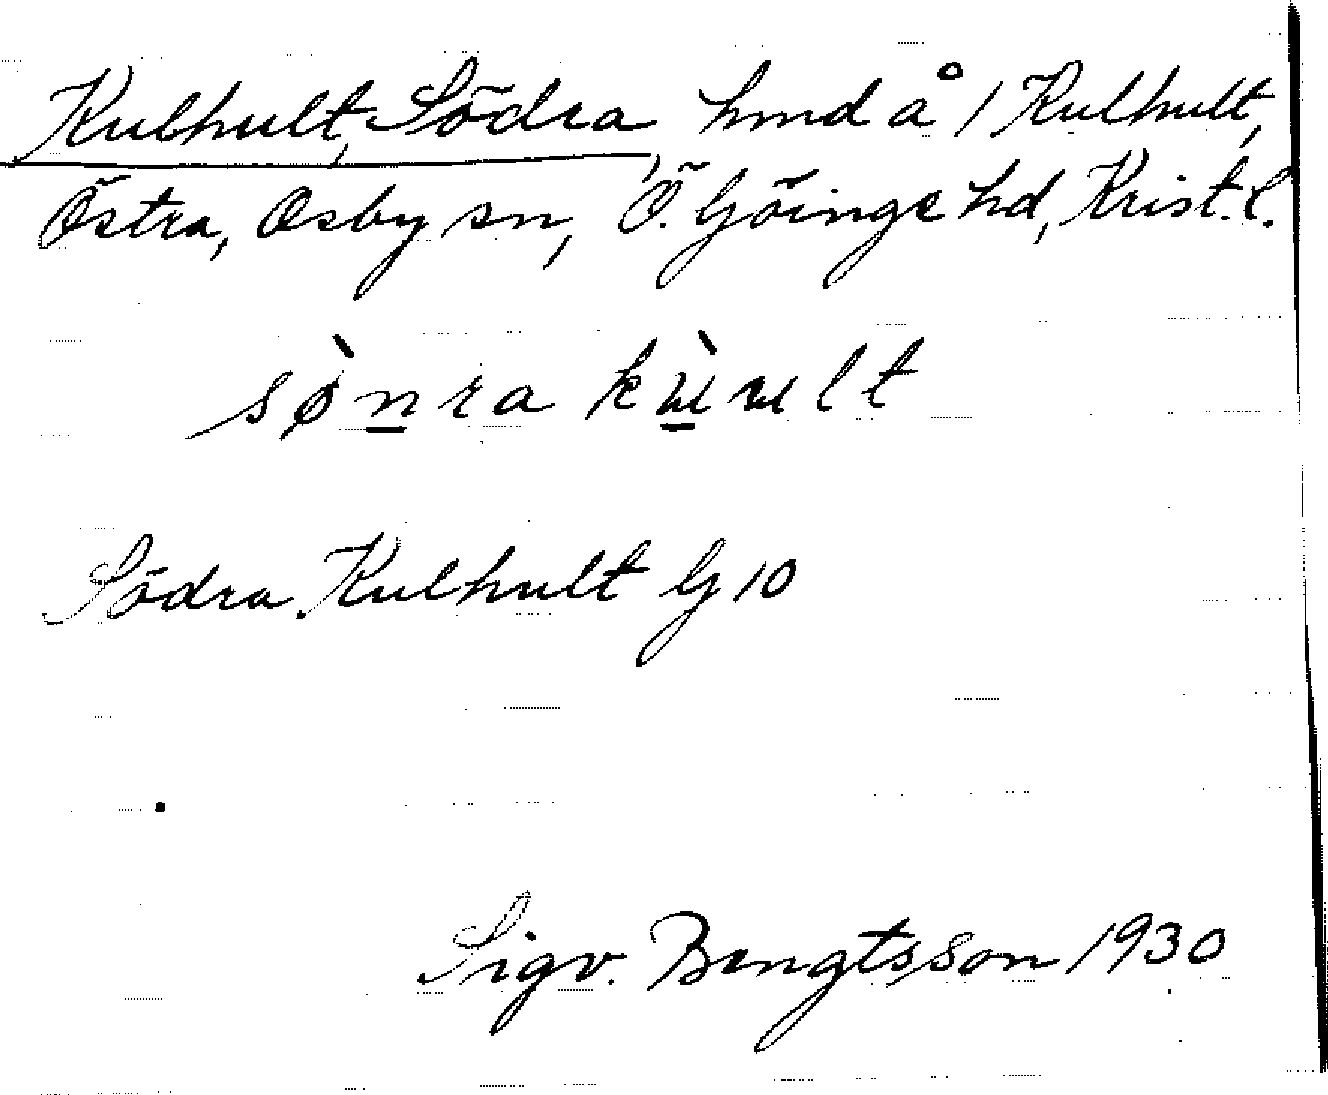 Kulhult, Södra, hmd å 1 Kulhult,
Östra, Osby sn, Ö. Göinge hd, Krist. l.
sø̀n̲ra kù̲ult
Södra Kulhult G 10
Sigv. Bengtsson 1930